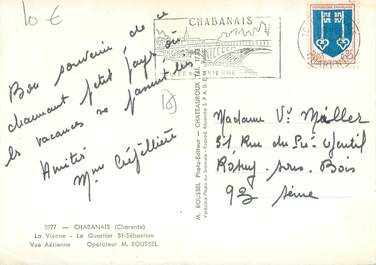 10 €
CHABANAIS
Bon souvenir de ce
charmant petit pays où
les vacances se passent
Amitiés
Mme
18
Madame Vve Müller
51, Rue du Pré Gentil
Rosny sous Bois
93 Seine
M. BOUSSEL Photo-Editeur - CHATEAUROUX Tél.
3977 — CHABANAIS (Charente)
La Vienne - Le Quartier St-Sébastien
Vue Aérienne Opérateur M. ROUSSEL